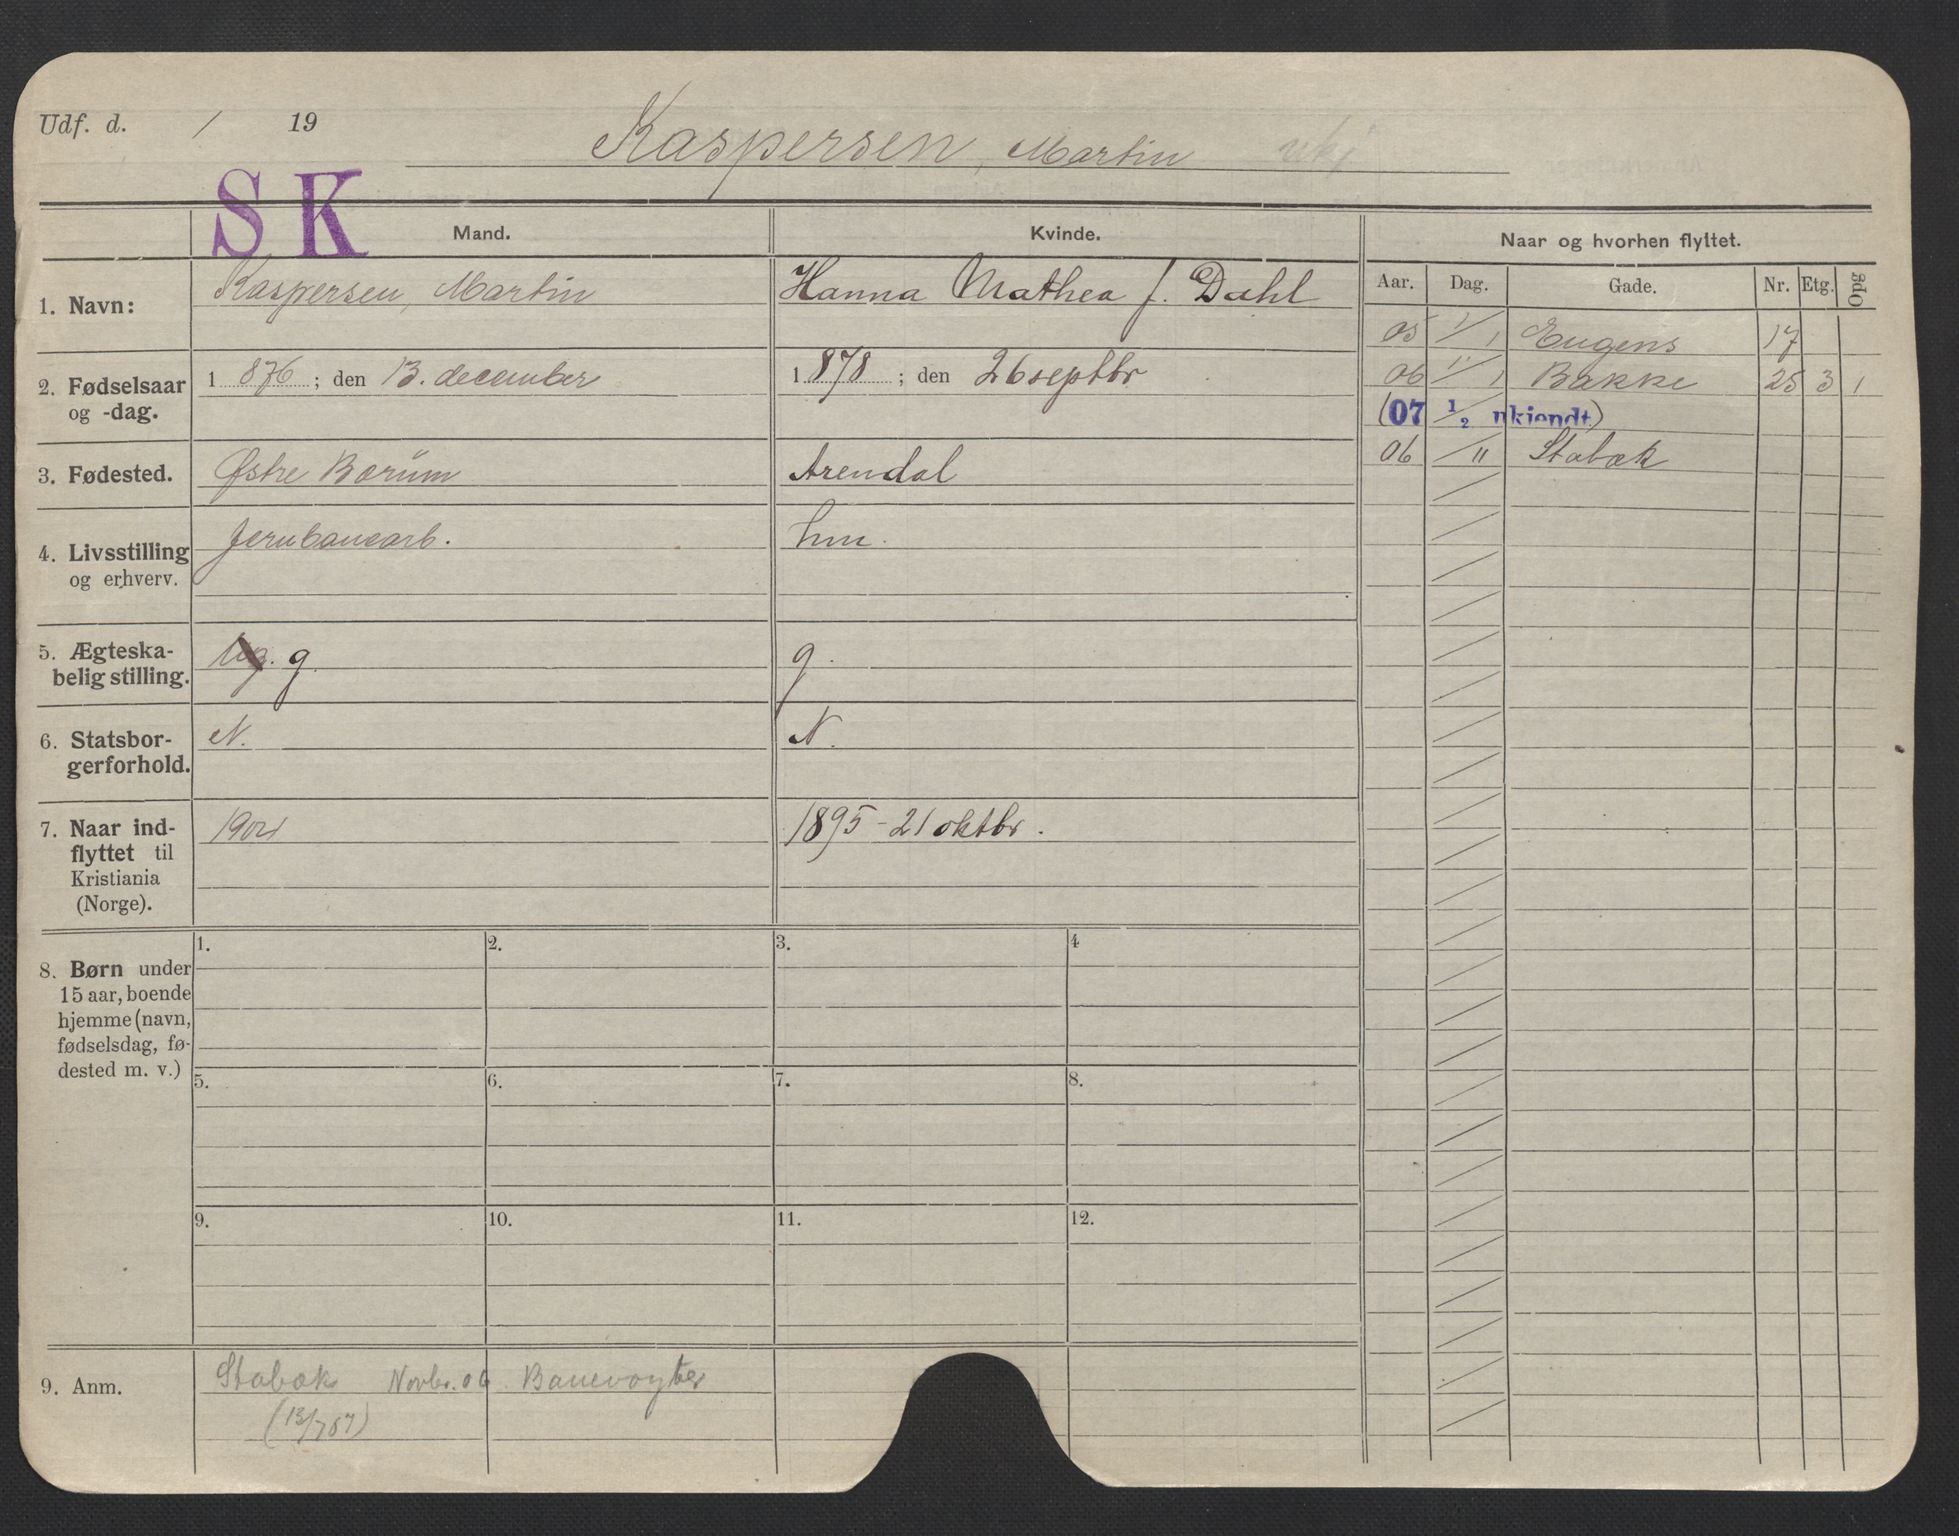 Udf. d. / 19
Kaspersen, Martin ukj
S K
Mand. Kvinde. Naar og hvorhen flyttet.
Aar. Dag. Gade. Nr. Etg. Opg
1. Navn: Kaspersen, Martin Hanna Mathea f. Dahl
05 1/1 Eugens 17
2. Fødselsaar og -dag. 1876; den 13. december 1878; den 26 septbr
06 1/1 Bakke 25 3 1
(07 1/2 ukjendt)
06 / 11 Stabæk
3. Fødested. Østre Bærum Arendal
4. Livsstilling og erhverv. Jernbanearb. hm.
5. Ægteska-
belig stilling. Ug. g. g.
6. Statsbor-
gerforhold. N. N.
7. Naar ind-
flyttet til
Kristiania
(Norge). 1904 1895 - 21 oktbr.
8. Børn under
15 aar, boende
hjemme (navn,
fødselsdag, fø-
dested m. v.)
1. 2. 3. 4
5. 6. 7. 8.
9. 10. 11. 12.
9. Anm. Stabæk Novbr. 06 Banevogter
(13/7 07)